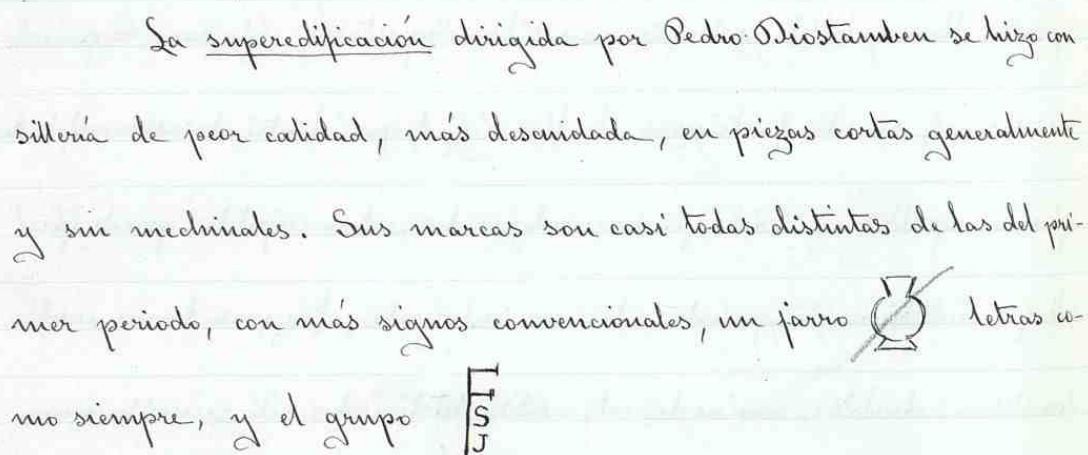 La superedificación dirigida por Pedro Diostamben se hizo con
sillería de peor calidad, más descuidada, en piezas cortas generalmente
y sin mechinales. Sus marcas son casi todas distintas de las del pri-
mer periodo, con más signos convencionales, un jarro letras co-
mo siempre, y el grupo
S
J